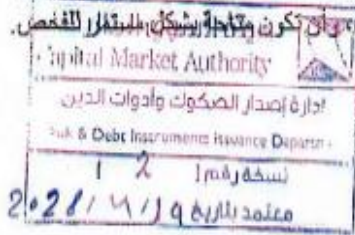 وأن تكون متاحة بشكل مستمر للفحص.
Capital Market Authority
إدارة إصدار الصكوك وأدوات الدين
Sukuk & Debt Instruments Issuance Departm
نسخة رقم 1
معتمد بتاريخ